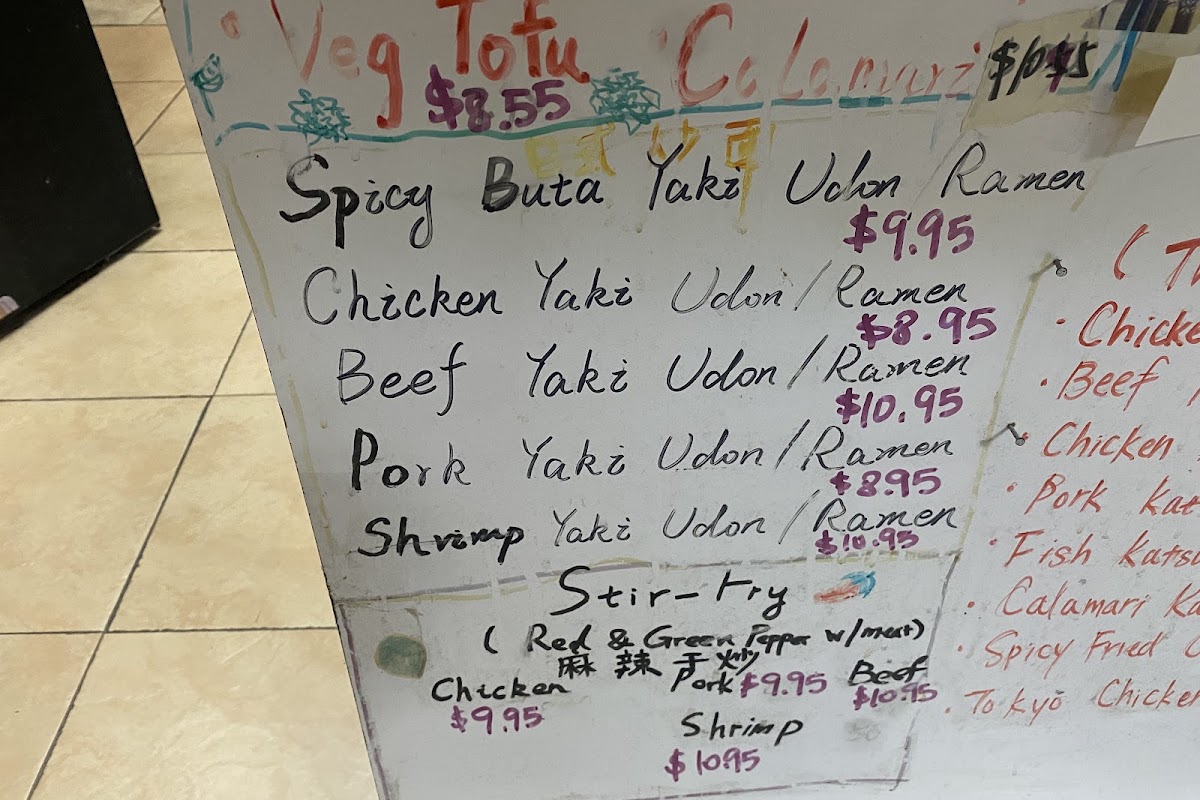 · Veg Tofu · Calamari
$8.55
日式 炒
Spicy Buta Yaki Udon/Ramen
$9.95
Chicken Yaki Udon/Ramen
$8.95
Beef Yaki Udon/Ramen
$10.95
Pork Yaki Udon/Ramen
$8.95
Shrimp Yaki Udon/Ramen
$10.95
Stir-Fry
( Red & Green Pepper w/meat)
麻 辣 干炒
Chicken Pork $9.95 Beef
$9.95 $10.95
Shrimp
$10.95
(
· Chicke
· Beef
· Chicken
· Pork Kat
· Fish Katsu
· Calamari Ka
· Spicy Fried
· Tokyo Chicken